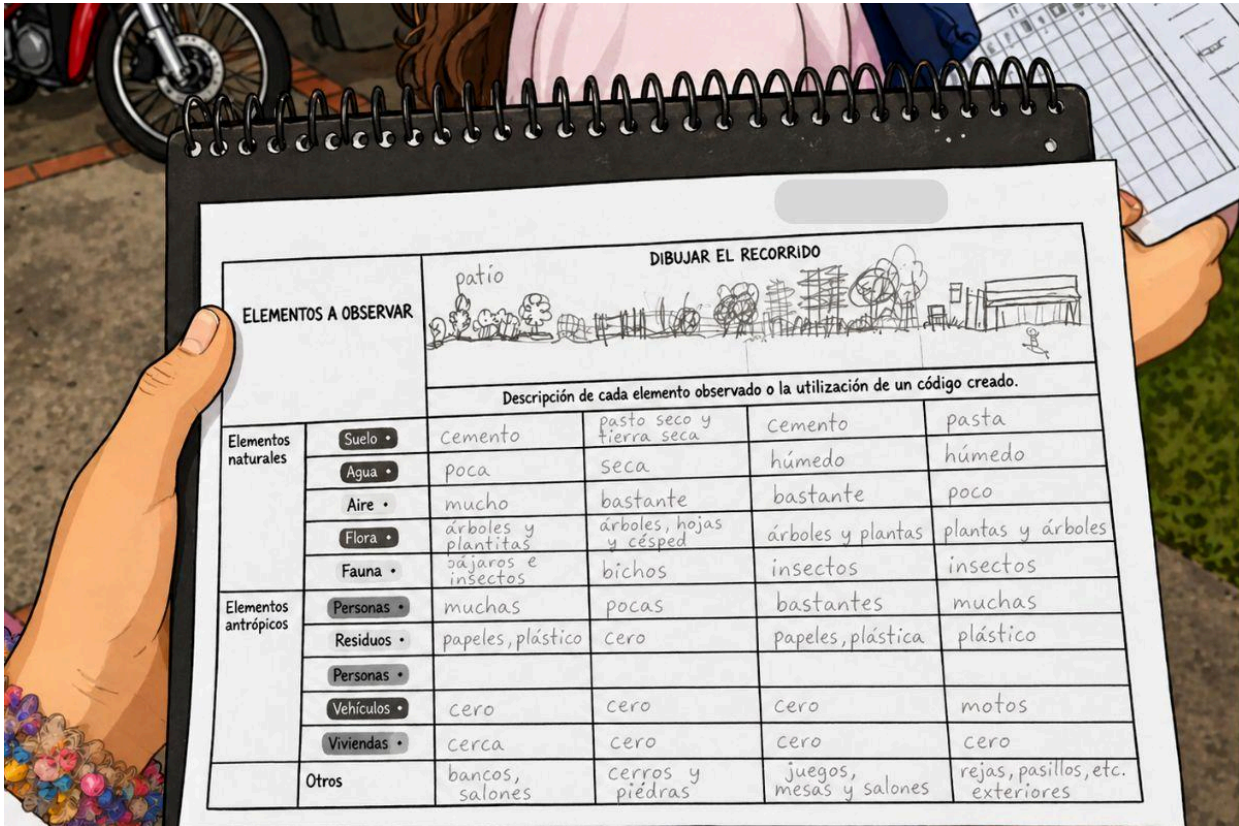 DIBUJAR EL RECORRIDO
patio
ELEMENTOS A OBSERVAR
Descripción de cada elemento observado o la utilización de un código creado.
Elementos naturales
Suelo • cemento pasto seco y tierra seca cemento pasta
Agua • poca seca húmedo húmedo
Aire • mucho bastante bastante poco
Flora • árboles y plantitas árboles, hojas y césped árboles y plantas plantas y árboles
Fauna • pájaros e insectos bichos insectos insectos
Elementos antrópicos
Personas • muchas pocas bastantes muchas
Residuos • papeles, plástico cero papeles, plástica plástico
Personas •
Vehículos • cero cero cero motos
Viviendas • cerca cero cero cero
Otros bancos, salones cerros y piedras juegos, mesas y salones rejas, pasillos, etc. exteriores